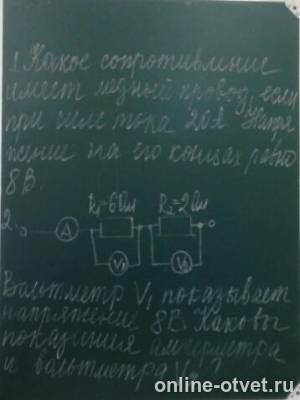 1. Какое сопротивление
имеет медный провод, если
при силе тока 20А Напря
жение на его концах равно
8В.
2.
R₁=6Ом R₂=2Ом
A
V₁ V₂
Вольтметр V₁ показывает
напряжение 8В. Каковы
показания амперметра
и вольтметра V₂?
online-otvet.ru